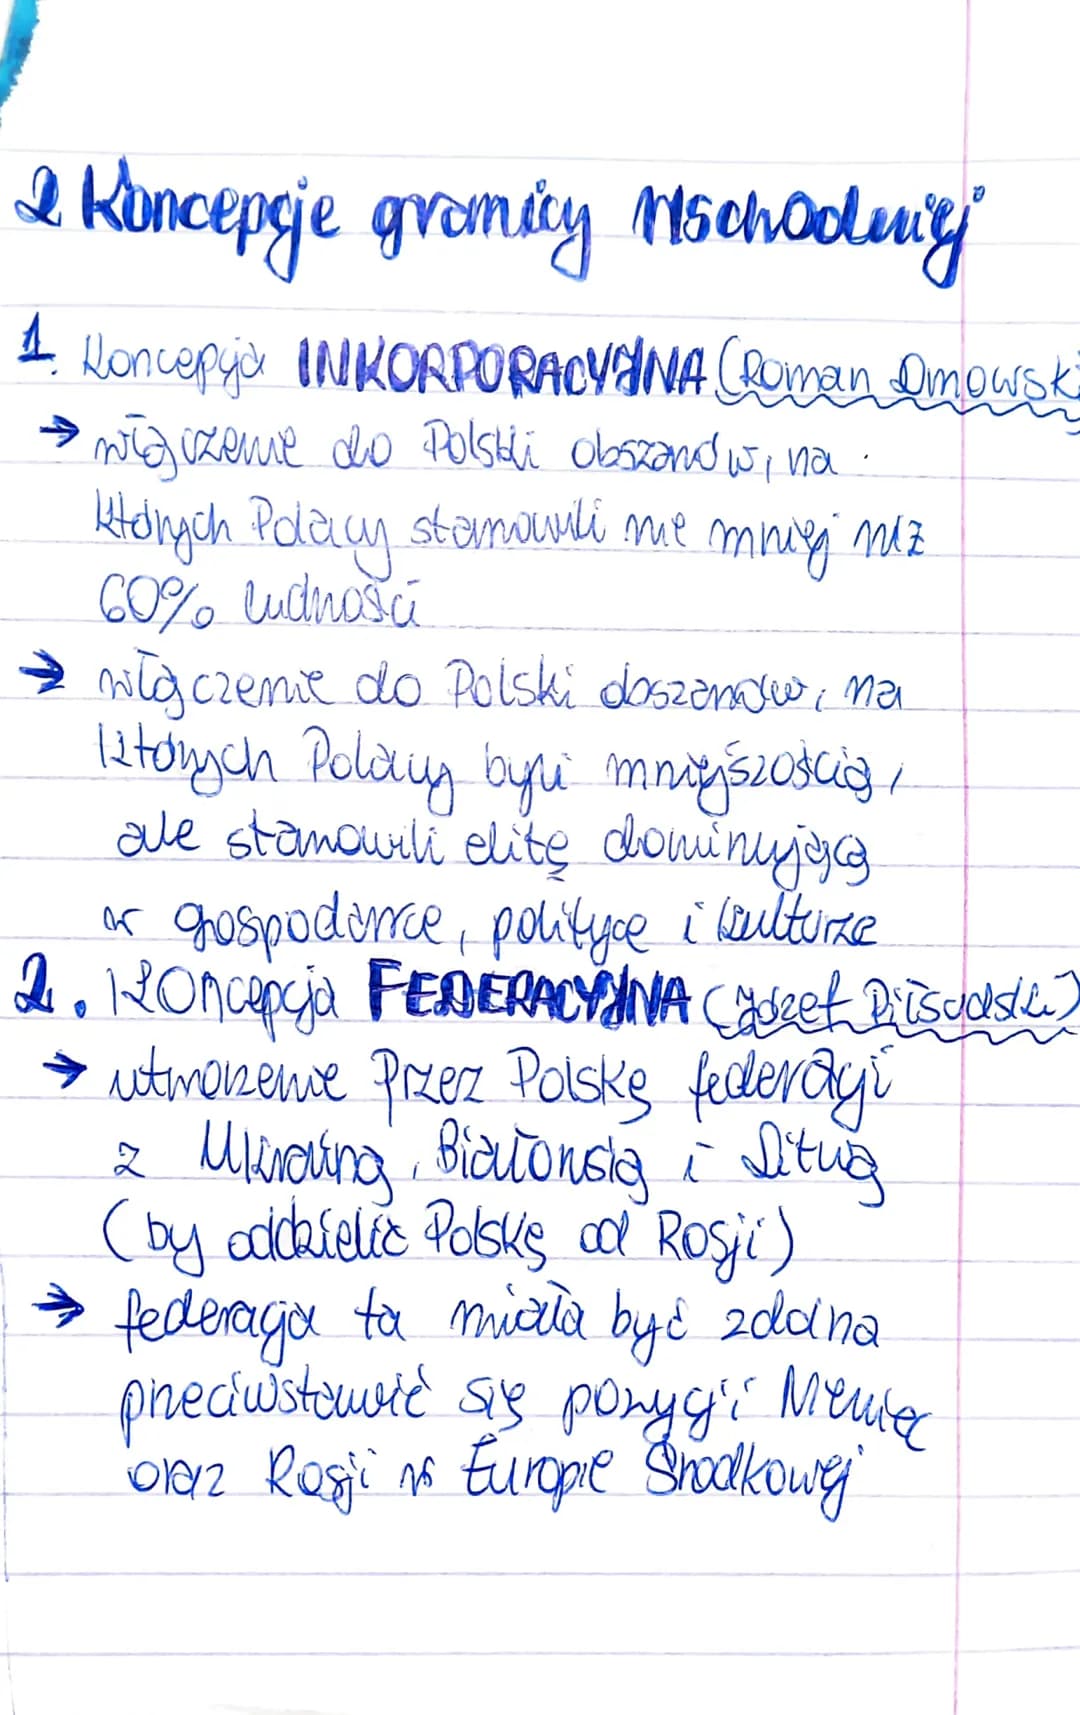 2 Koncepcje granicy wschodniej
1. Koncepcja INKORPORACYJNA (Roman Dmowski
→ włączenie do Polski obszarów, na
których Polacy stanowili nie mniej niż
60% ludności
→ włączenie do Polski obszarów, na
których Polacy byli mniejszością,
ale stanowili elitę dominującą
w gospodarce, polityce i kulturze
2. Koncepcja FEDERACYJNA (Józef Piłsudski)
→ utworzenie przez Polskę federacji
z Ukrainą, Białorusią i Litwą
(by oddzielić Polskę od Rosji)
→ federacja ta miała być zdolna
przeciwstawić się pozycji Niemiec
oraz Rosji w Europie Środkowej